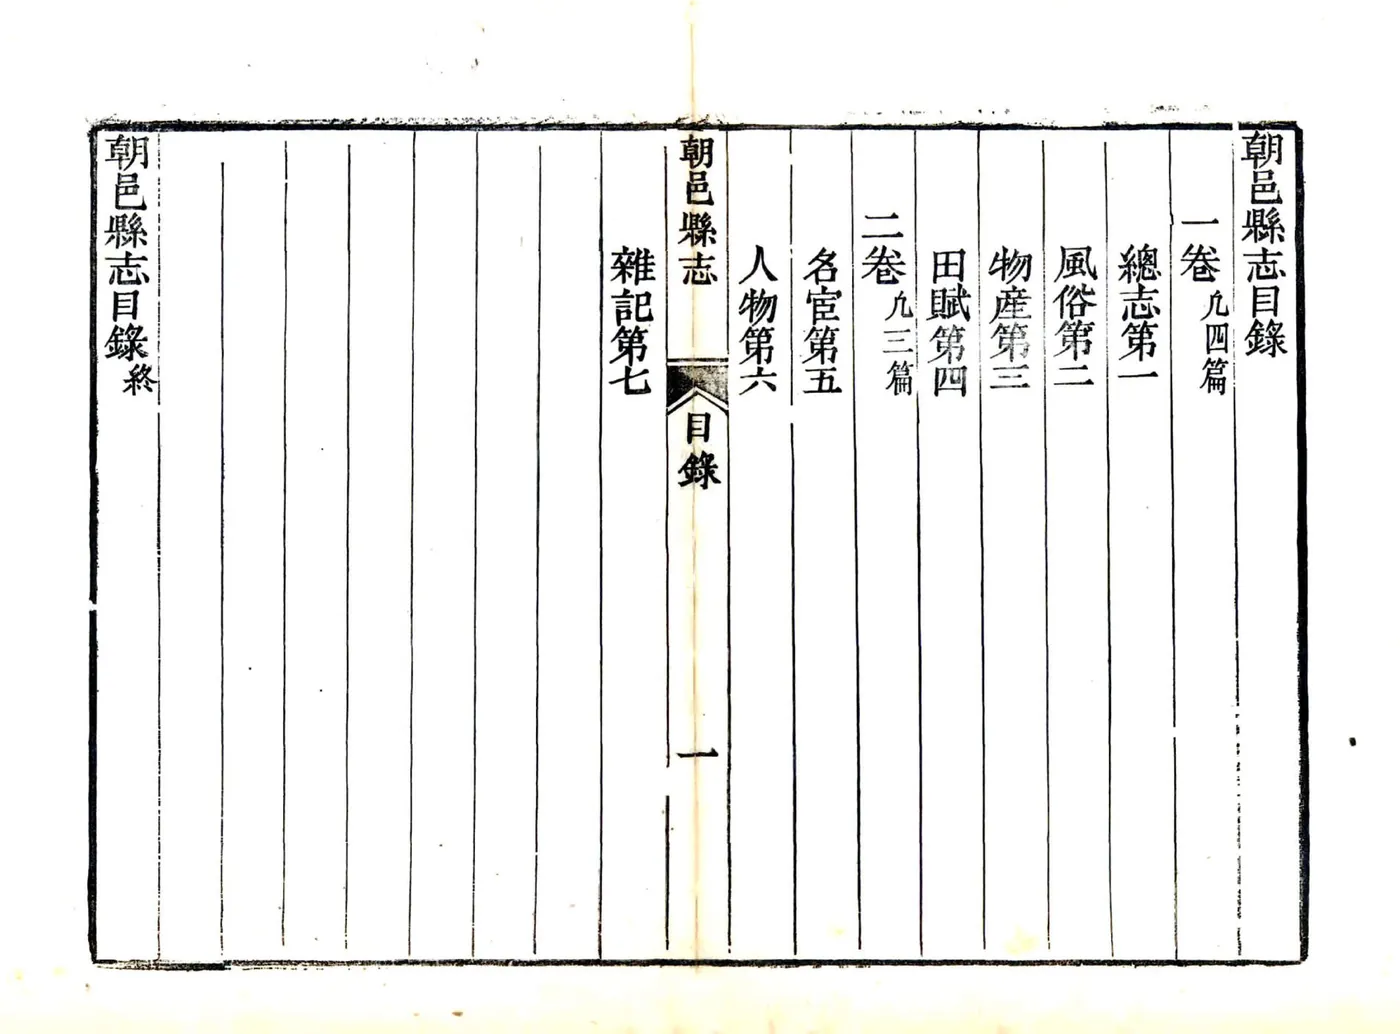 朝邑縣志目錄
一卷 凢四篇
總志第一
風俗第二
物產第三
田賦第四
二卷 凢三篇
名宦第五
人物第六
朝邑縣志 目錄 一
雜記第七
朝邑縣志目錄終